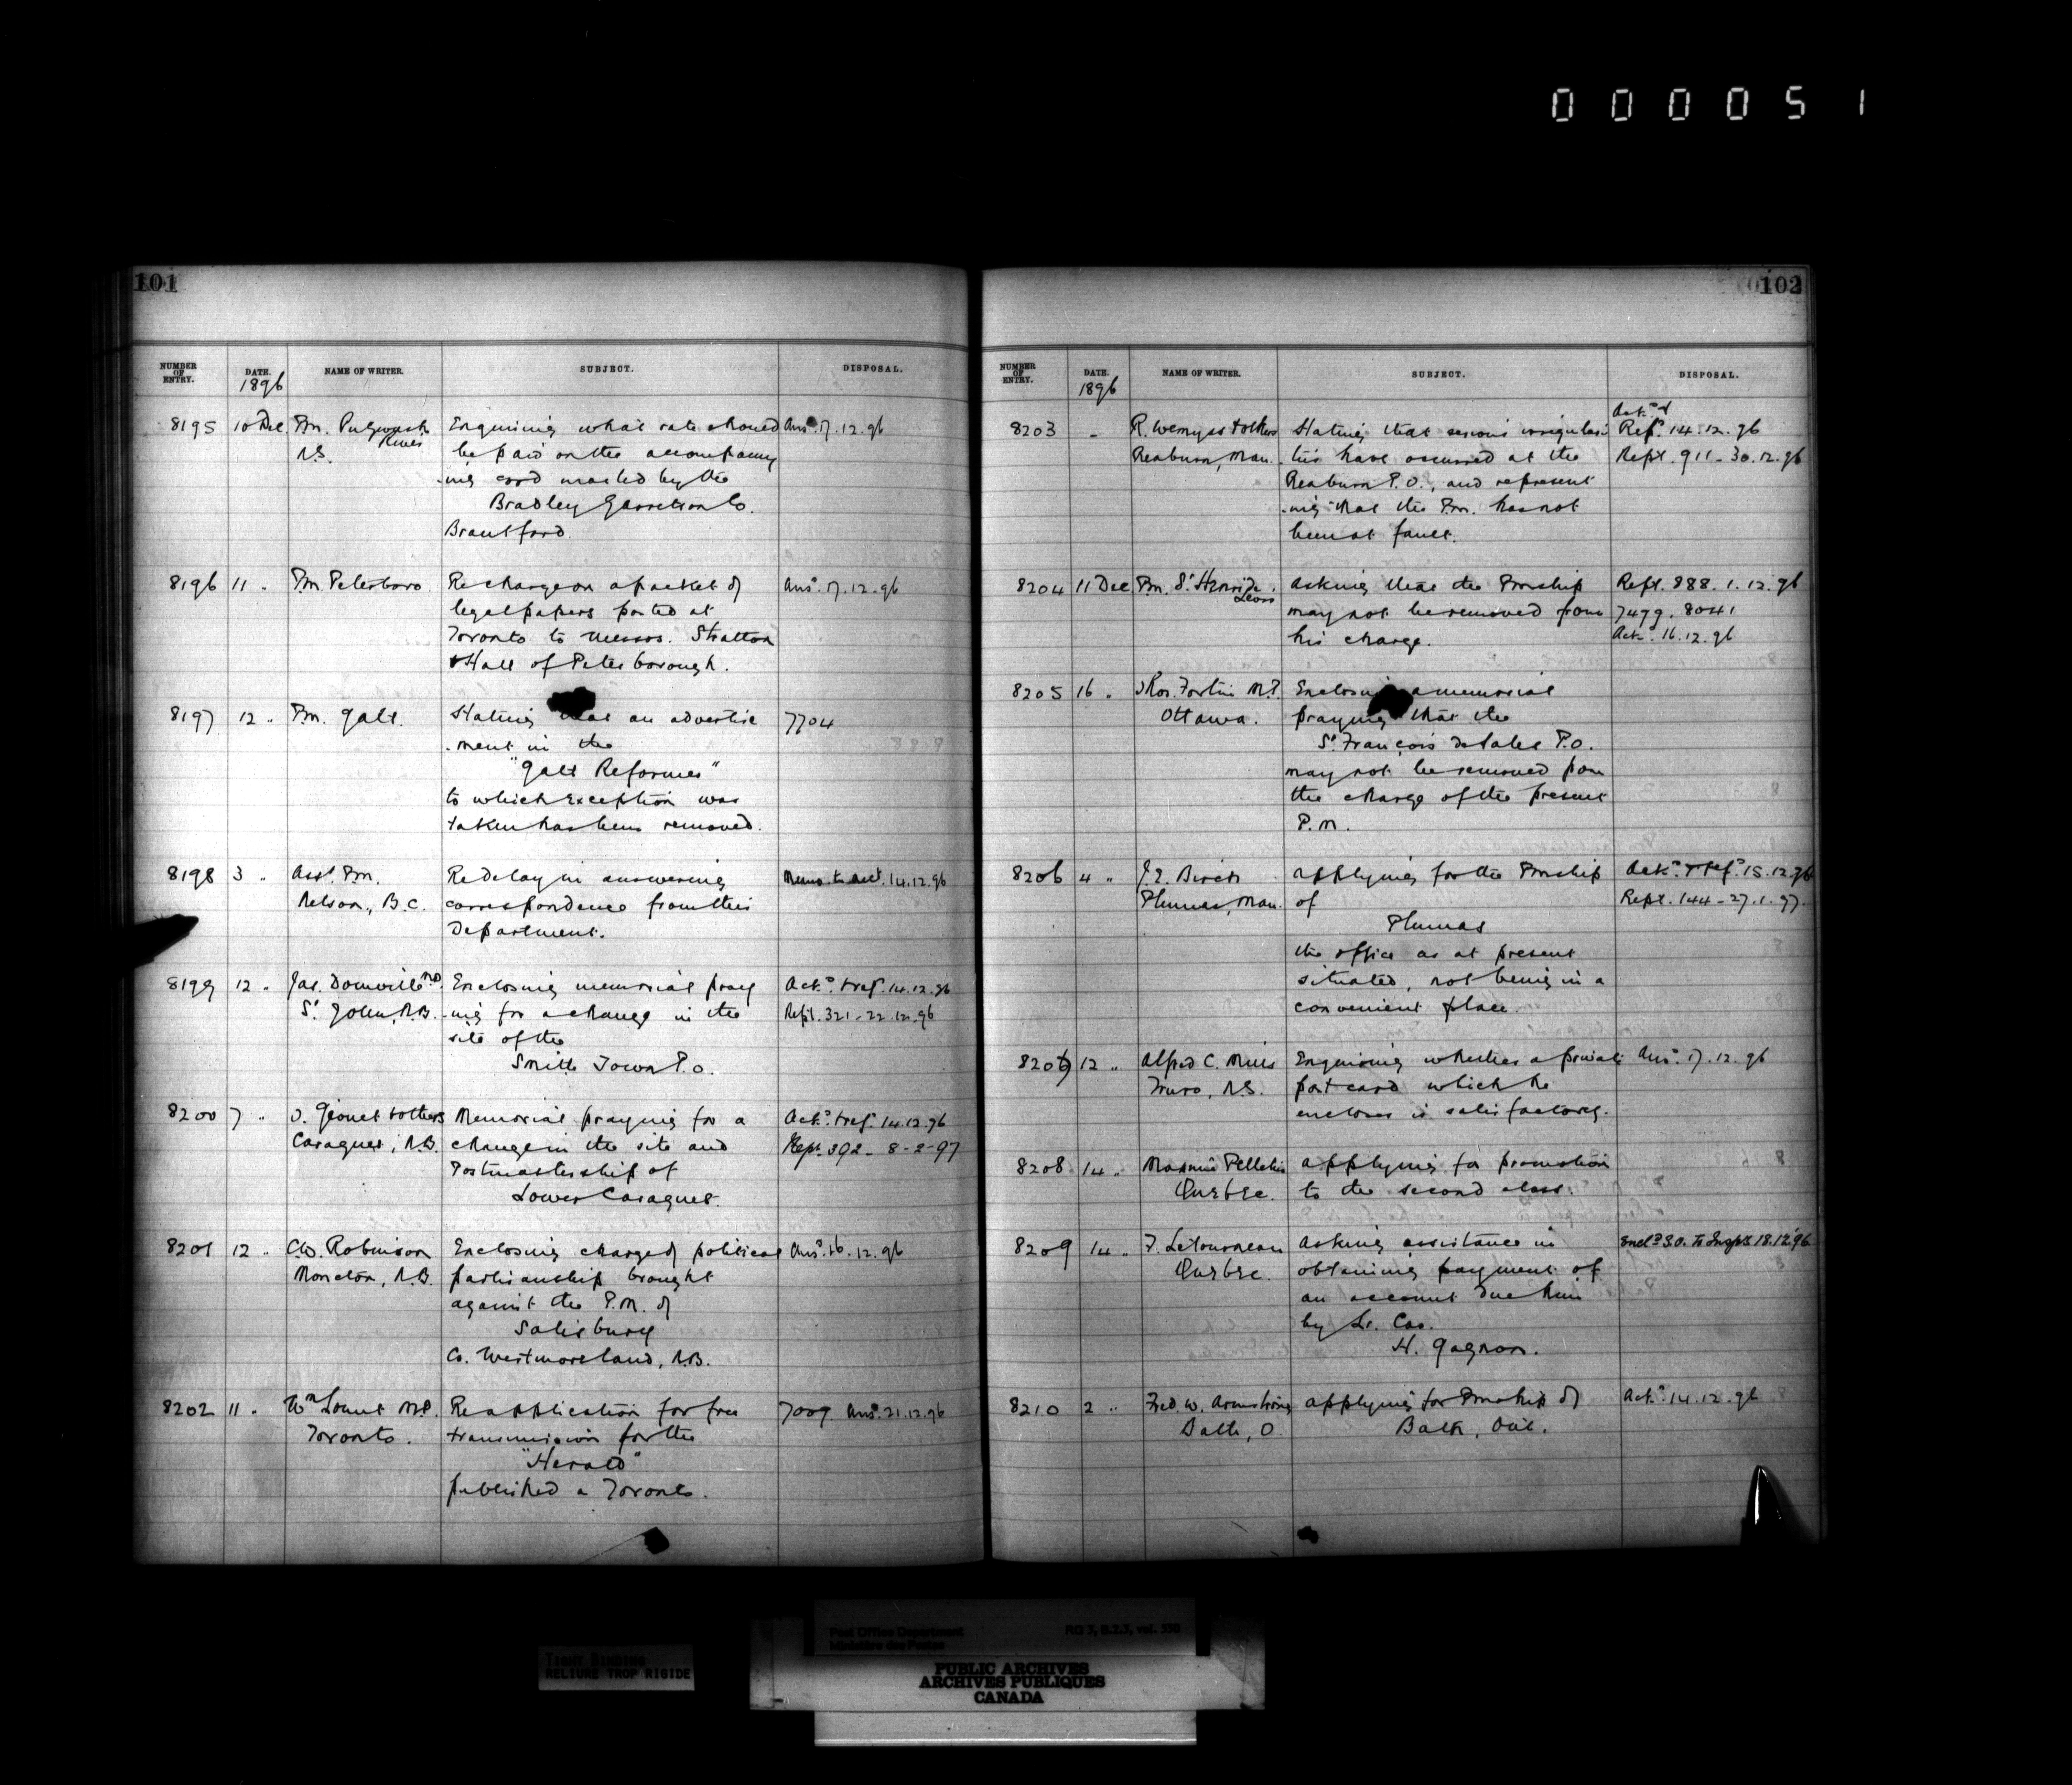 000051
101
NUMBER OF ENTRY.
DATE.
1896
NAME OF WRITER.
SUBJECT.
DISPOSAL.
8195 10 Dec. Pm. Pugwash Enquiring what rate should Ansd. 17.12.96
River
N.S. be paid on the accompany
-ing card mailed by the
Bradley Garretson Co.
Brantford
8196 11 " Pm. Peterboro. Re charge on a packet of Ansd. 17.12.96
legal papers posted at
Toronto to Messrs. Stratton
& Hall of Peterborough.
8197 12 " Pm. Galt. Stating that an advertise 7704
-ment in the
"Galt Reformer"
to which exception was
taken has been removed.
8198 3 " Asst. Pm. Re delay in answering Memo. to Acct. 14.12.96
Nelson, B.C. correspondence from this
Department.
8199 12 " Jas. Domville MP. Enclosing memorial pray Ackd. & refd. 14.12.96
St. John, N.B. -ing for a change in the Rept. 321-22.12.96
site of the
Smith Town P.O.
8200 7 " & others Memorial praying for a Ackd. & refd. 14.12.96
Caraquet, N.B. change in the site and Rept. 392 - 8-2-97
Postmastership of
Lower Caraquet.
8201 12 " C.W. Robinson Enclosing charge of political Ansd. 16.12.96
Moncton, N.B. partisanship brought
against the P.M. of
Salisbury
Co. Westmoreland, N.B.
8202 11 " Wm. Lount M.P. Re application for free 7009. Ansd. 21.12.96
Toronto. transmission for the
"Herald"
published a Toronto.
102
NUMBER OF ENTRY.
DATE.
1896
NAME OF WRITER.
SUBJECT.
DISPOSAL.
Ackd. &
8203 - R. Wemyss & others Stating that serious irregulari Refd. 14.12.96
Reaburn, Man. -ties have occurred at the Rept. 911-30.12.96
Reaburn P.O., and represent
-ing that the Pm. has not
been at fault.
8204 11 Dec Pm. St. Henri de Asking that the Pmship Rept. 888.1.12.96
may not be removed from 7479. 8041
his charge. Ackd. 16.12.96
8205 16 " Thos. Fortin M.P. Enclosing a memorial
Ottawa. praying that the
St. François de Sales P.O.
may not be removed from
the charge of the present
P.M.
8206 4 " Birch Applying for the Pmship Ackd. & refd. 15.12.96
Plumas, Man. of Rept. 144-27.1.97.
Plumas
the office as at present
situated, not being in a
convenient place.
8207 12 " Alfred C. Mills Enquiring whether a private Ansd. 17.12.96
Truro, N.S. post card which he
encloses is satisfactory.
8208 14 " Pelletier Applying for promotion
Quebec. to the second class.
8209 14 " F. Letourneau Asking assistance in Encld. S.O. to Inspr. 18.12.96
Quebec. obtaining payment of
an account due him
by Lr. Car.
H. Gagnon.
8210 2 " Fred. W. Armstrong Applying for Pmship of Ackd. 14.12.96
Bath, O. Bath, Ont.
Post Office Department
Ministère des Postes
RG 3, B.2.3, vol. 550
TIGHT BINDING
RELIURE TROP RIGIDE
PUBLIC ARCHIVES
ARCHIVES PUBLIQUES
CANADA